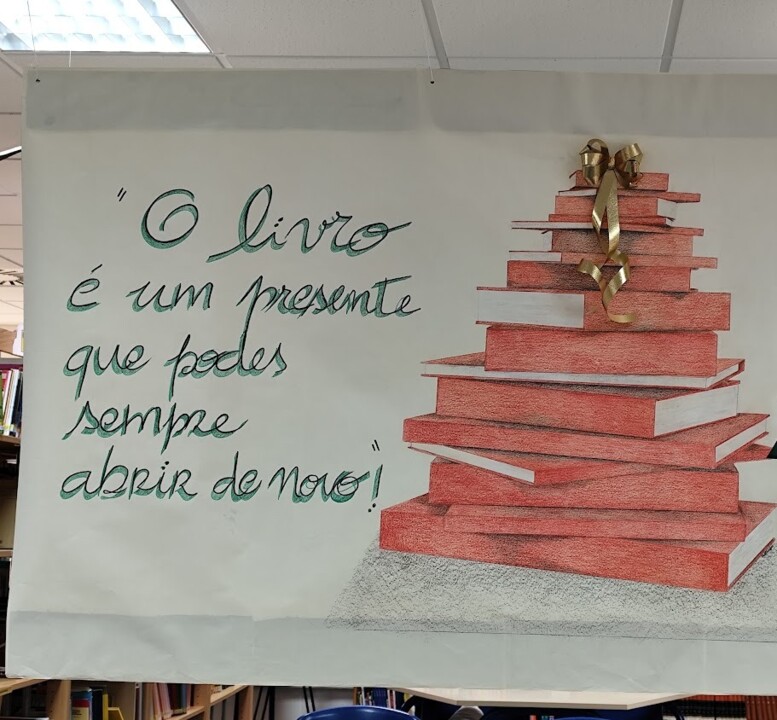 "O livro
é um presente
que podes
sempre
abrir de novo!"